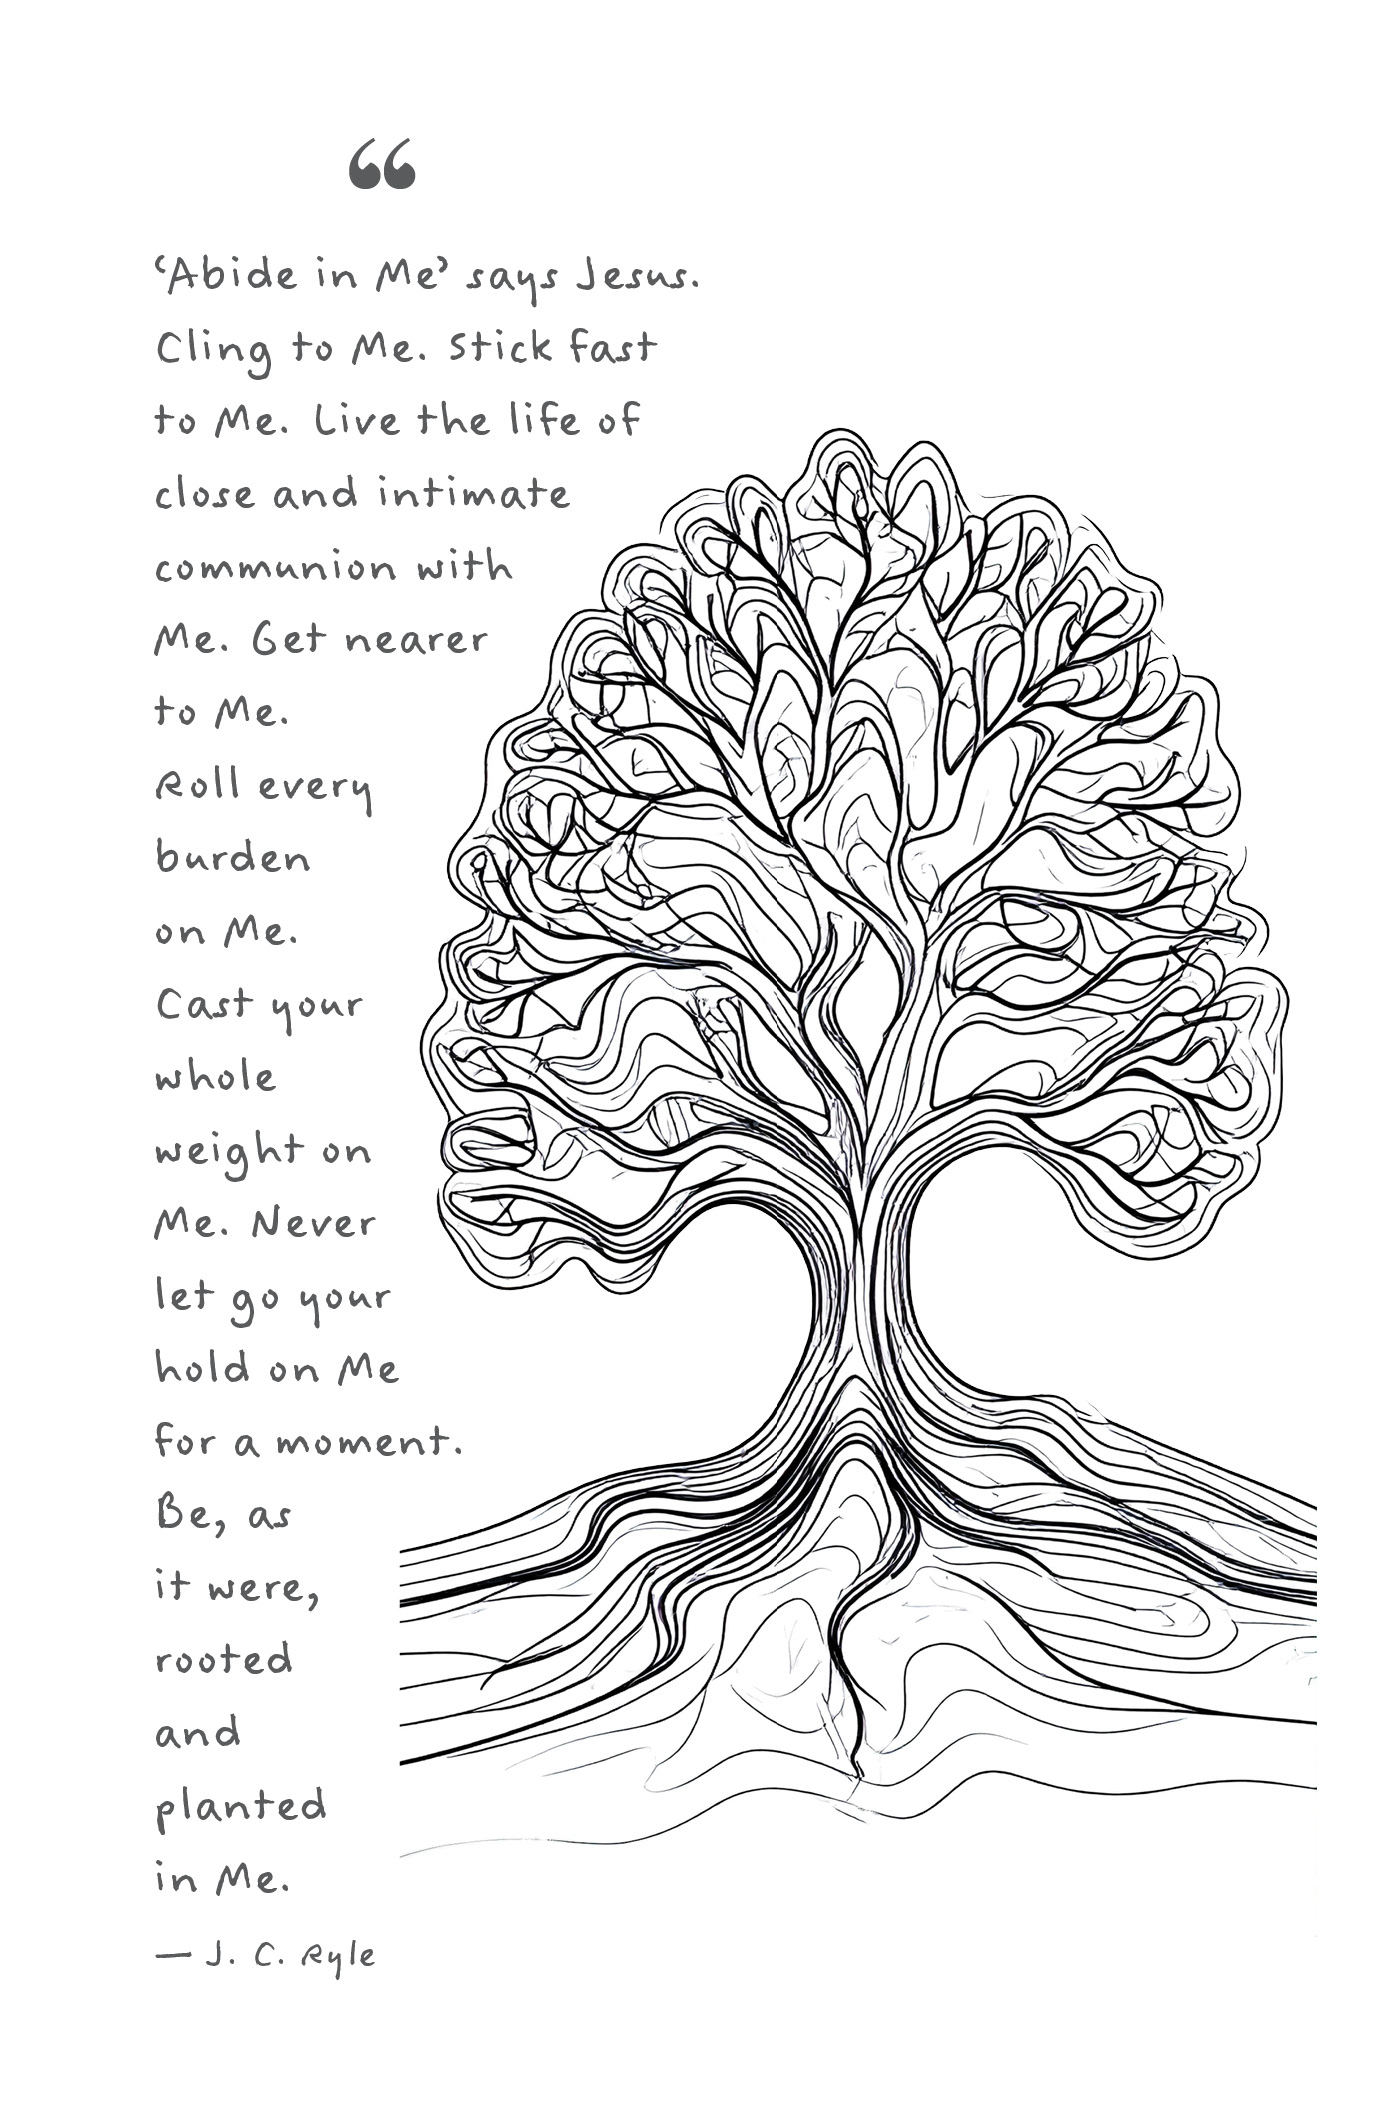 “
‘Abide in Me’ says Jesus.
Cling to Me. Stick fast
to Me. Live the life of
close and intimate
communion with
Me. Get nearer
to Me.
Roll every
burden
on Me.
Cast your
whole
weight on
Me. Never
let go your
hold on Me
for a moment.
Be, as
it were,
rooted
and
planted
in Me.
— J. C. Ryle